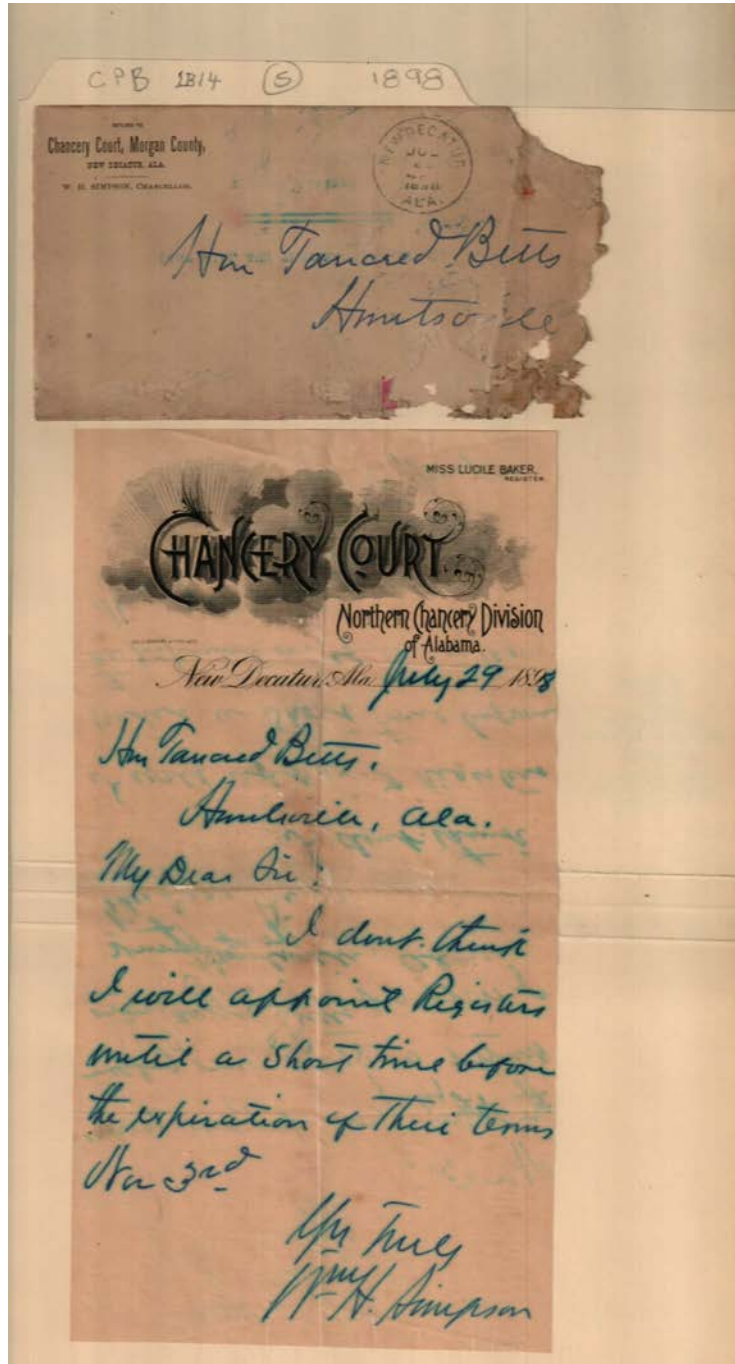 CPB 2B14 (5) 1898
Chancery Court, Morgan County,
NEW DECATUR, ALA.
W. H. SIMPSON, CHANCELLOR.
NEW DECATUR
JUL
1898
ALA.
Hon Tancred Betts
Huntsville
MISS LUCILE BAKER,
REGISTER.
CHANCERY COURT.
Northern Chancery Division
of Alabama.
New Decatur, Ala. July 29 1898
Hon Tancred Betts,
Huntsville, Ala.
My Dear Sir:
I dont think
I will appoint Registers
until a short time before
the expiration of their terms
Nov 3rd
Yrs Truly
Wm H. Simpson